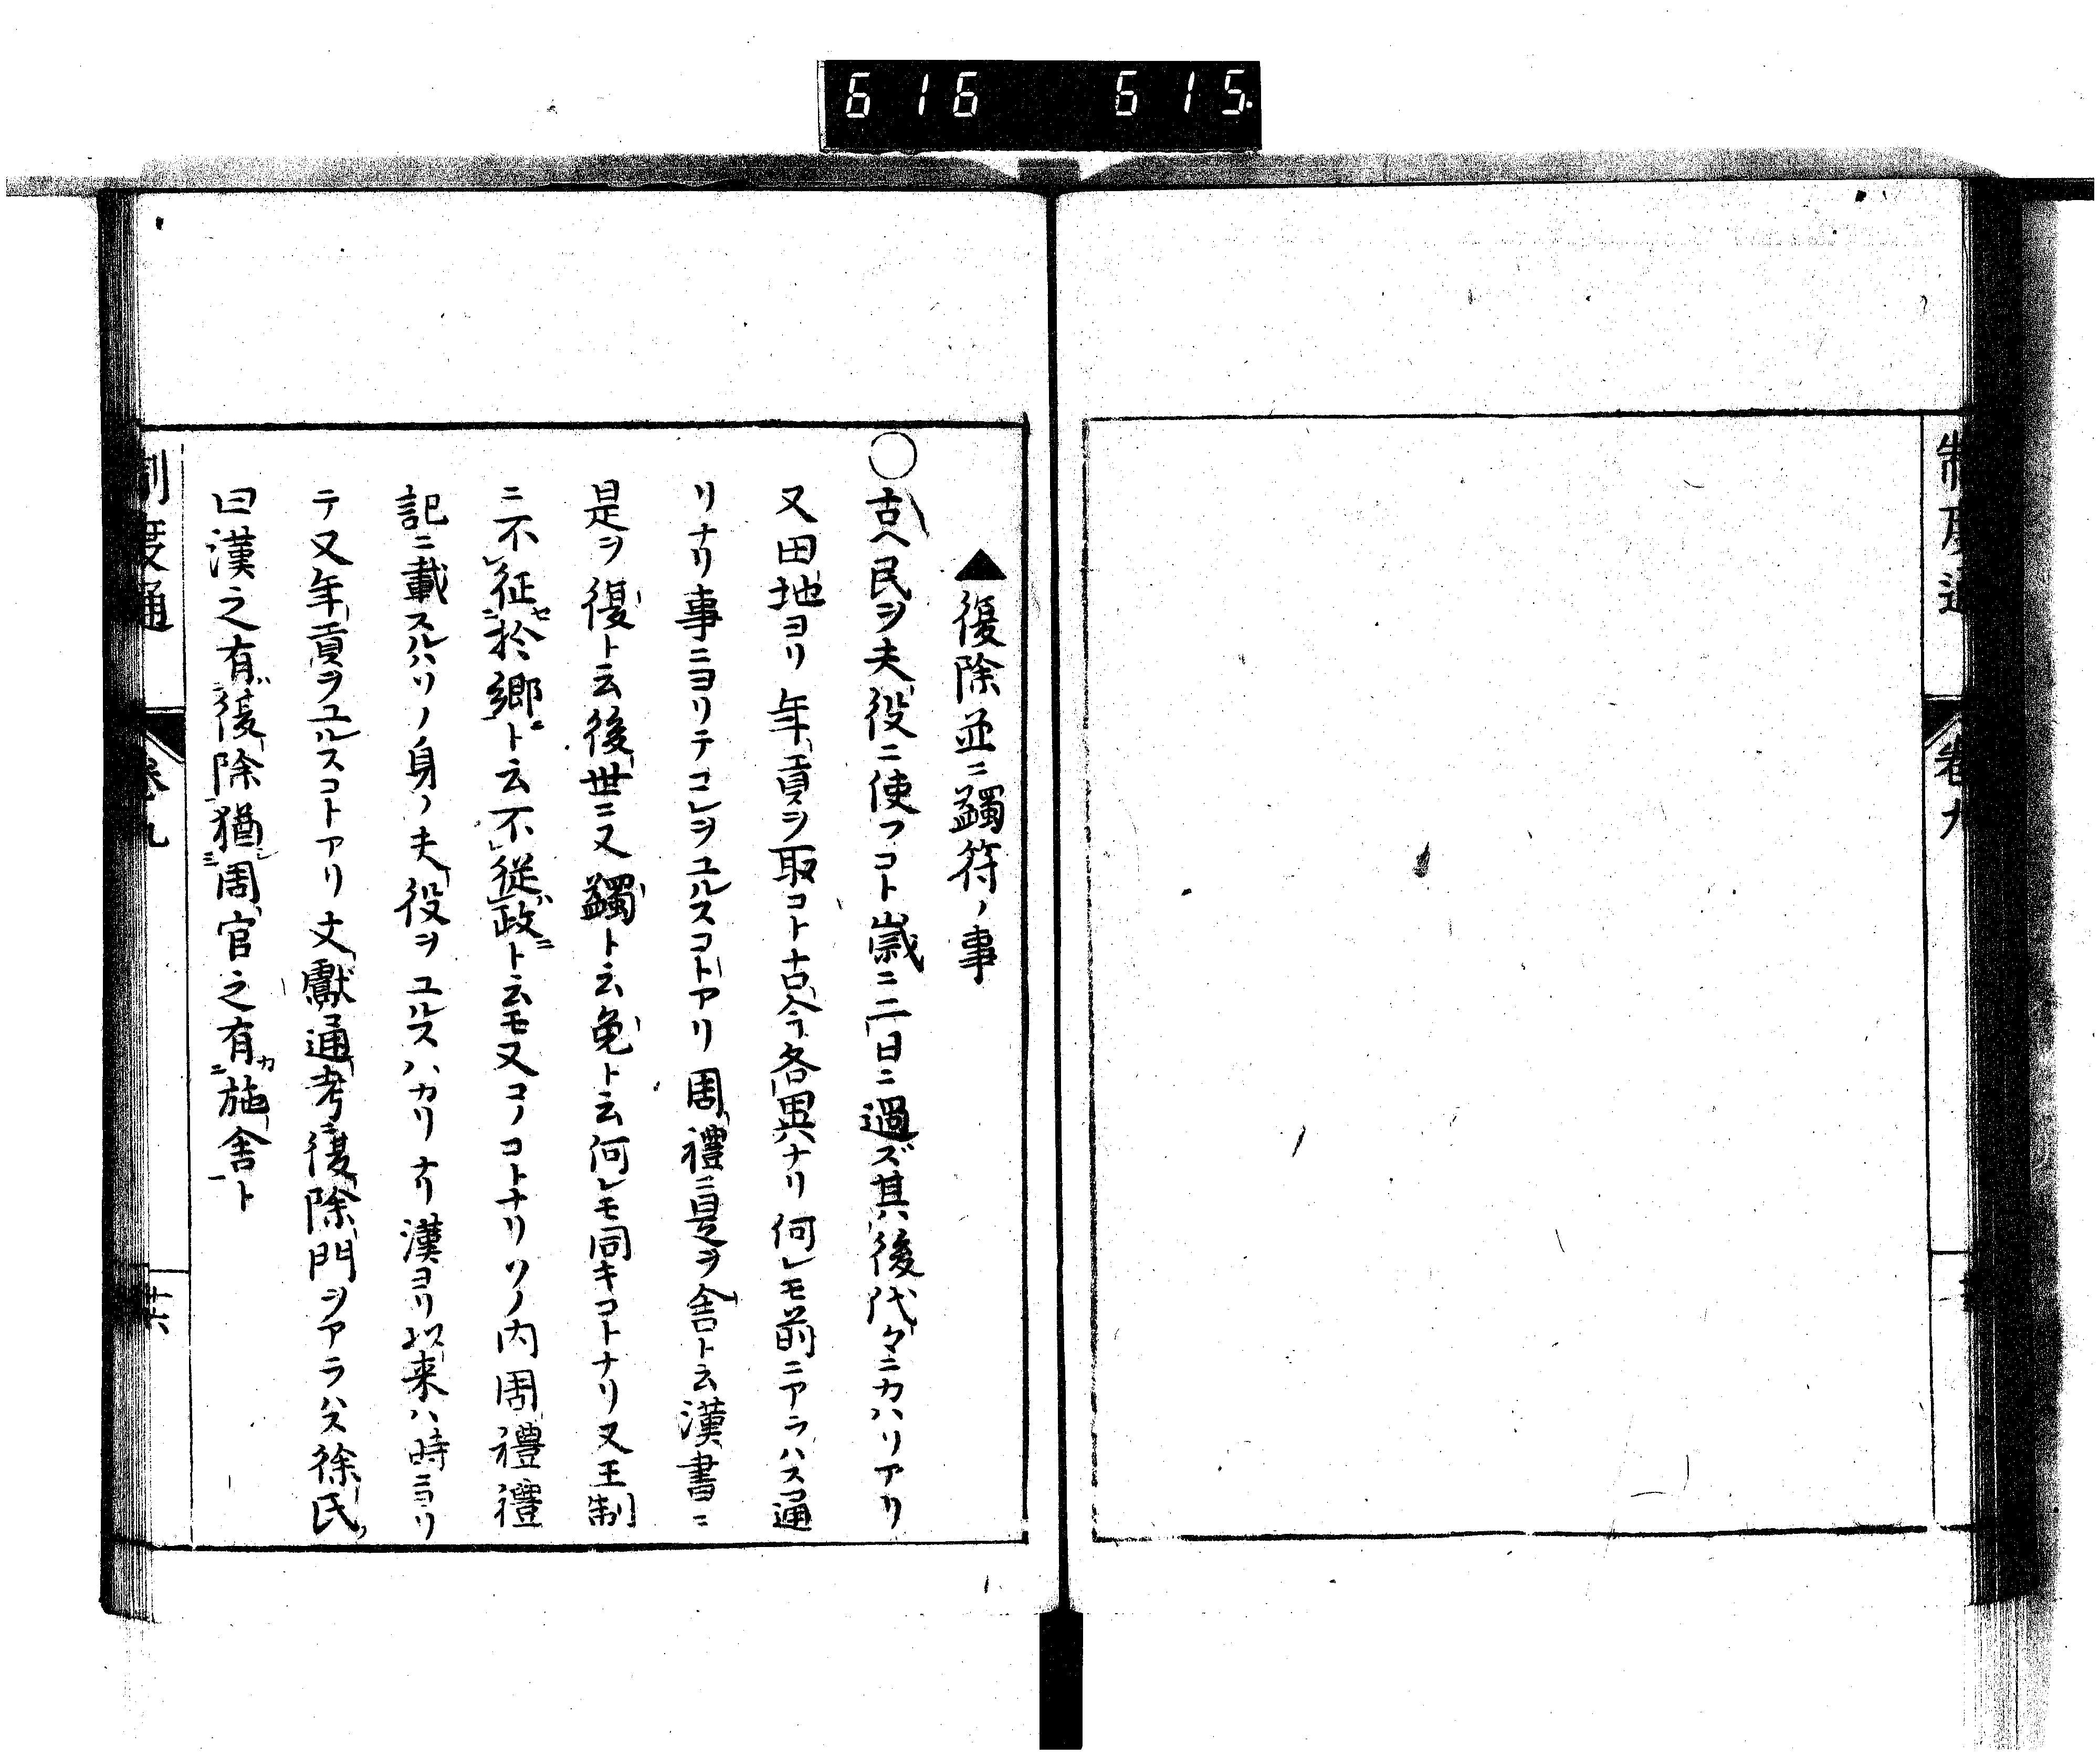 616 615
制度通
卷九
▲復除並ニ蠲符ノ事
○古ヘ民ヲ夫役ニ使フコト歳ニ三日ニ過ズ其後代々ニカハリアリ
又田地ヨリ年貢ヲ取コト古今各異ナリ何レモ前ニアラハス通
リナリ事ニヨリテコレヲユルスコトアリ周禮ニ是ヲ舎ト云漢書ニ
是ヲ復ト云後世ニ又蠲ト云免ト云何レモ同キコトナリ又王制
ニ不征セ於郷ニト云不從政ニト云モ又コノコトナリソノ内周禮禮
記ニ載スルハソノ身ノ夫役ヲユルスハカリナリ漢ヨリ以来ハ時ニヨリ
テ又年貢ヲユルスコトアリ文獻通考ニ復除門ヲアラハス徐氏
曰漢之有復除猶周官之有施舎ト
制度通
卷九
廿六